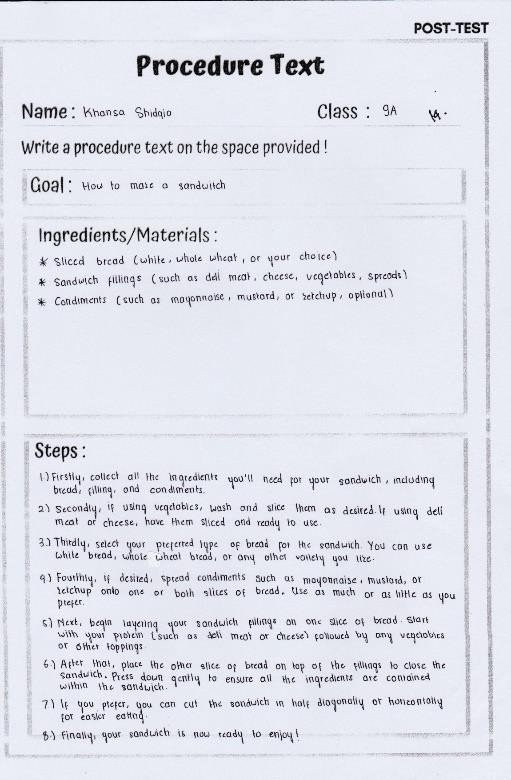 POST-TEST
Procedure Text
Name : Khansa Shidqia Class : 9A
Write a procedure text on the space provided !
Goal : How to make a sandwitch
Ingredients/Materials :
* Sliced bread (white, whole wheat, or your choice)
* Sandwich fillings (such as deli meat, cheese, vegetables, spreads)
* Condiments (such as mayonnaise, mustard, or ketchup, optional)
Steps :
1.) Firstly, collect all the ingredients you'll need for your sandwich, including
bread, filling, and condiments.
2) Secondly, if using vegetables, wash and slice them as desired. If using deli
meat or cheese, have them sliced and ready to use.
3.) Thirdly, select your preferred type of bread for the sandwich. You can use
white bread, whole wheat bread, or any other variety you like.
4) Fourthly, if desired, spread condiments such as mayonnaise, mustard, or
ketchup onto one or both slices of bread. Use as much or as little as you
prefer.
5.) Next, begin layering your sandwich fillings on one slice of bread. Start
with your protein (such as deli meat or cheese) followed by any vegetables
or other toppings.
6.) After that, place the other slice of bread on top of the fillings to close the
sandwich. Press down gently to ensure all the ingredients are contained
within the sandwich.
7.) If you prefer, you can cut the sandwich in half diagonally or horizontally
for easier eating.
8.) Finally, your sandwich is now ready to enjoy!